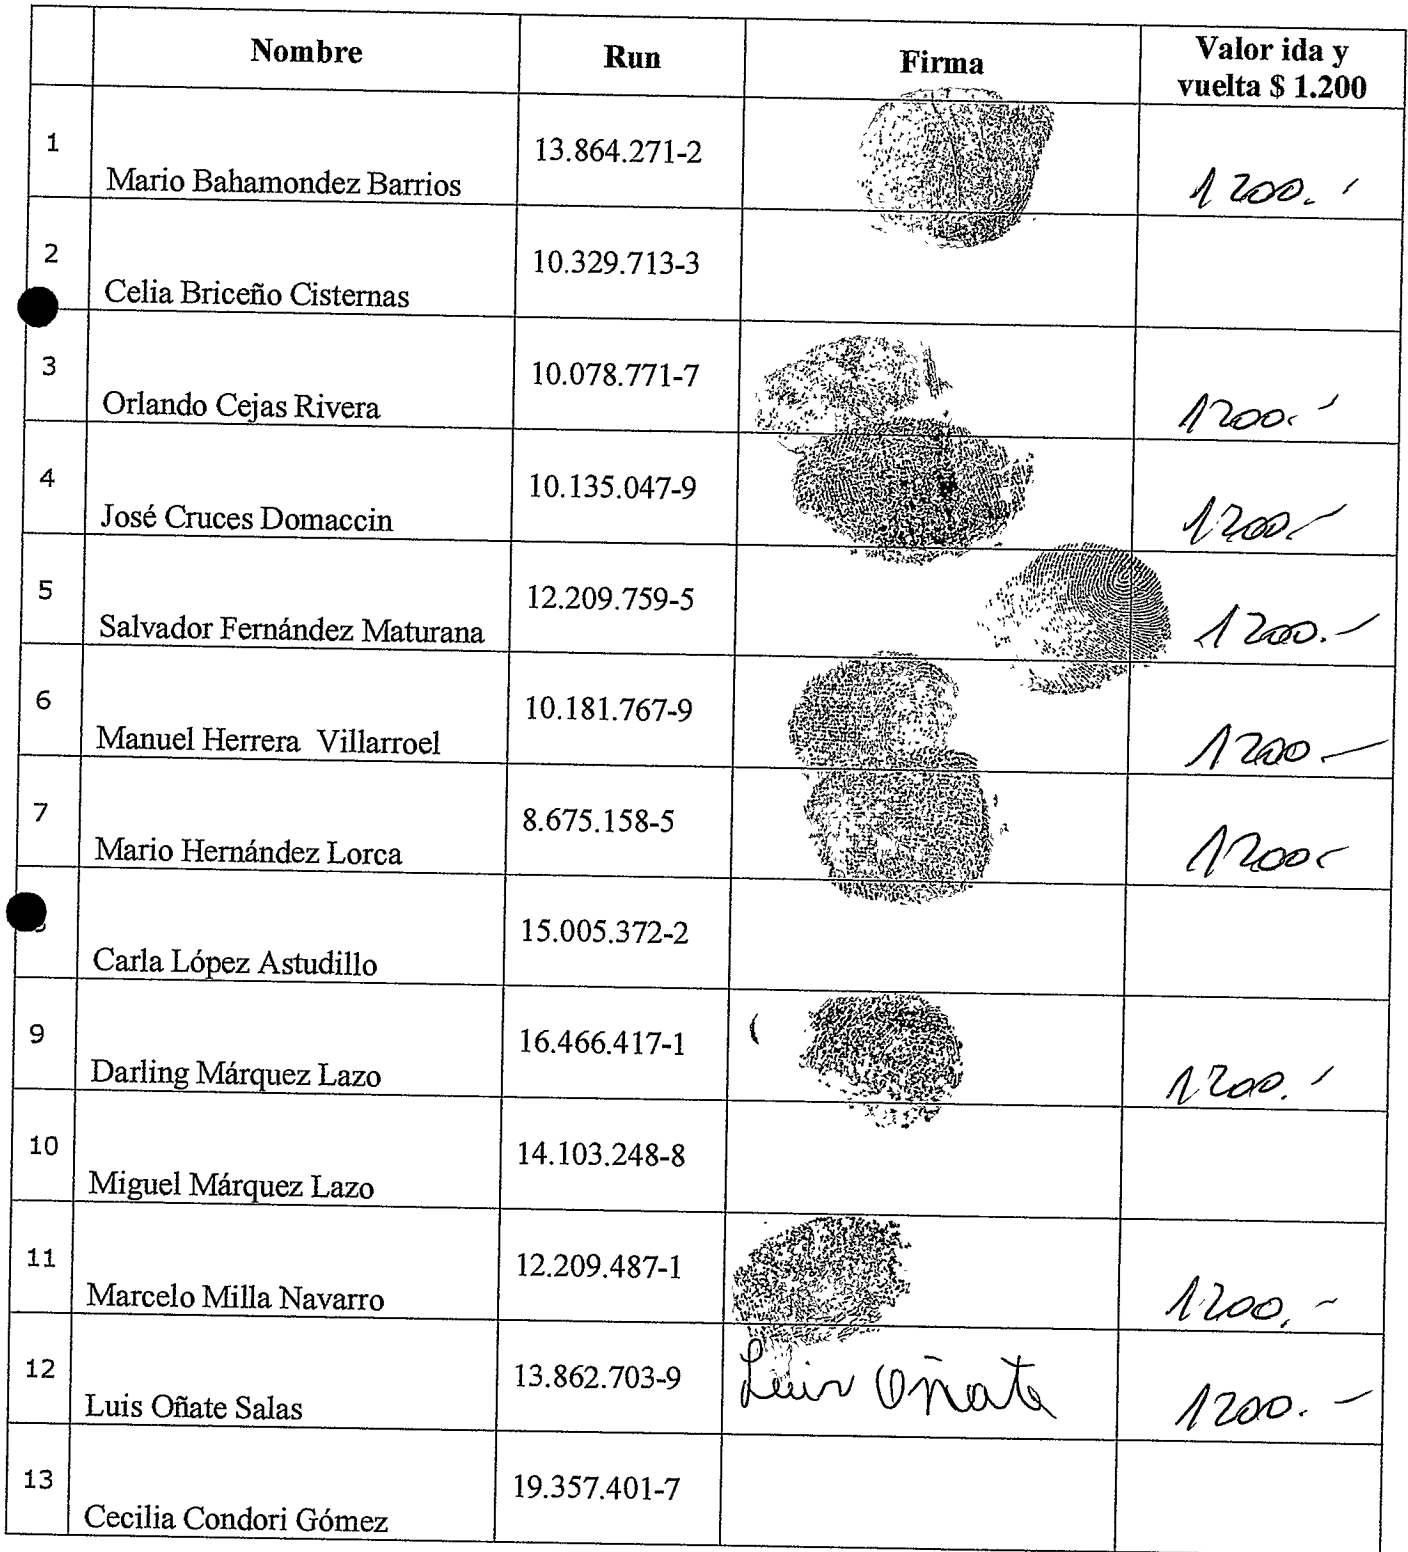 Nombre Run Firma Valor ida y
vuelta $ 1.200
1 Mario Bahamondez Barrios 13.864.271-2 1200.-
2 Celia Briceño Cisternas 10.329.713-3
3 Orlando Cejas Rivera 10.078.771-7 1200.-
4 José Cruces Domaccin 10.135.047-9 1200-
5 Salvador Fernández Maturana 12.209.759-5 1200.-
6 Manuel Herrera Villarroel 10.181.767-9 1200.-
7 Mario Hernández Lorca 8.675.158-5 1200-
Carla López Astudillo 15.005.372-2
9 Darling Márquez Lazo 16.466.417-1 1200.-
10 Miguel Márquez Lazo 14.103.248-8
11 Marcelo Milla Navarro 12.209.487-1 1200.-
12 Luis Oñate Salas 13.862.703-9 Luis Oñate 1200.-
13 Cecilia Condori Gómez 19.357.401-7